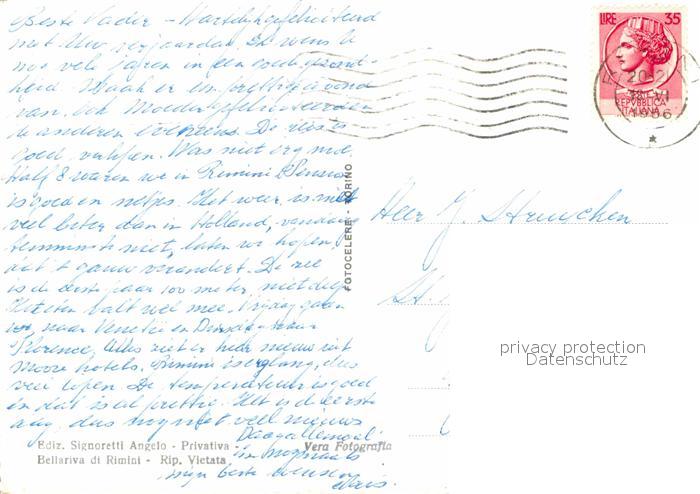 Beste Vader - Hartelijk gefeliciteerd
met Uw verjaardag. Ik wens U
nog vele jaren in een goede gezond-
heid. Maak er een prettige avond
van, ook Moeder gefeliciteerd en
de anderen eveneens. De reis is
goed verlopen. Was niet erg moe
Half 8 waren we in Rimini. Pension
is goed en netjes. Het weer is niet
veel beter dan in Holland, vandaag
tenminste niet, laten we hopen,
dat 't gauw verandert. De zee
is de eerste paar 100 meter niet diep
Het eten valt wel mee. Vrijdag gaan
we naar Venetië en Dinsdag naar
Florence. Alles ziet er hier nieuw uit
mooie hotels. Rimini is erg lang, dus
veel lopen. De temperatuur is goed
en dat is al prettig. Het is de eerste
dag, dus nog niet veel nieuws
Dag allemaal
en nogmaals
mijn beste wensen
Heer J.
St.
LIRE 35
REPVBBLICA
ITALIANA
FOTOCELERE - TORINO
privacy protection
Datenschutz
Ediz. Signoretti Angelo - Privativa - Vera Fotografia
Bellariva di Rimini - Rip. Vietata